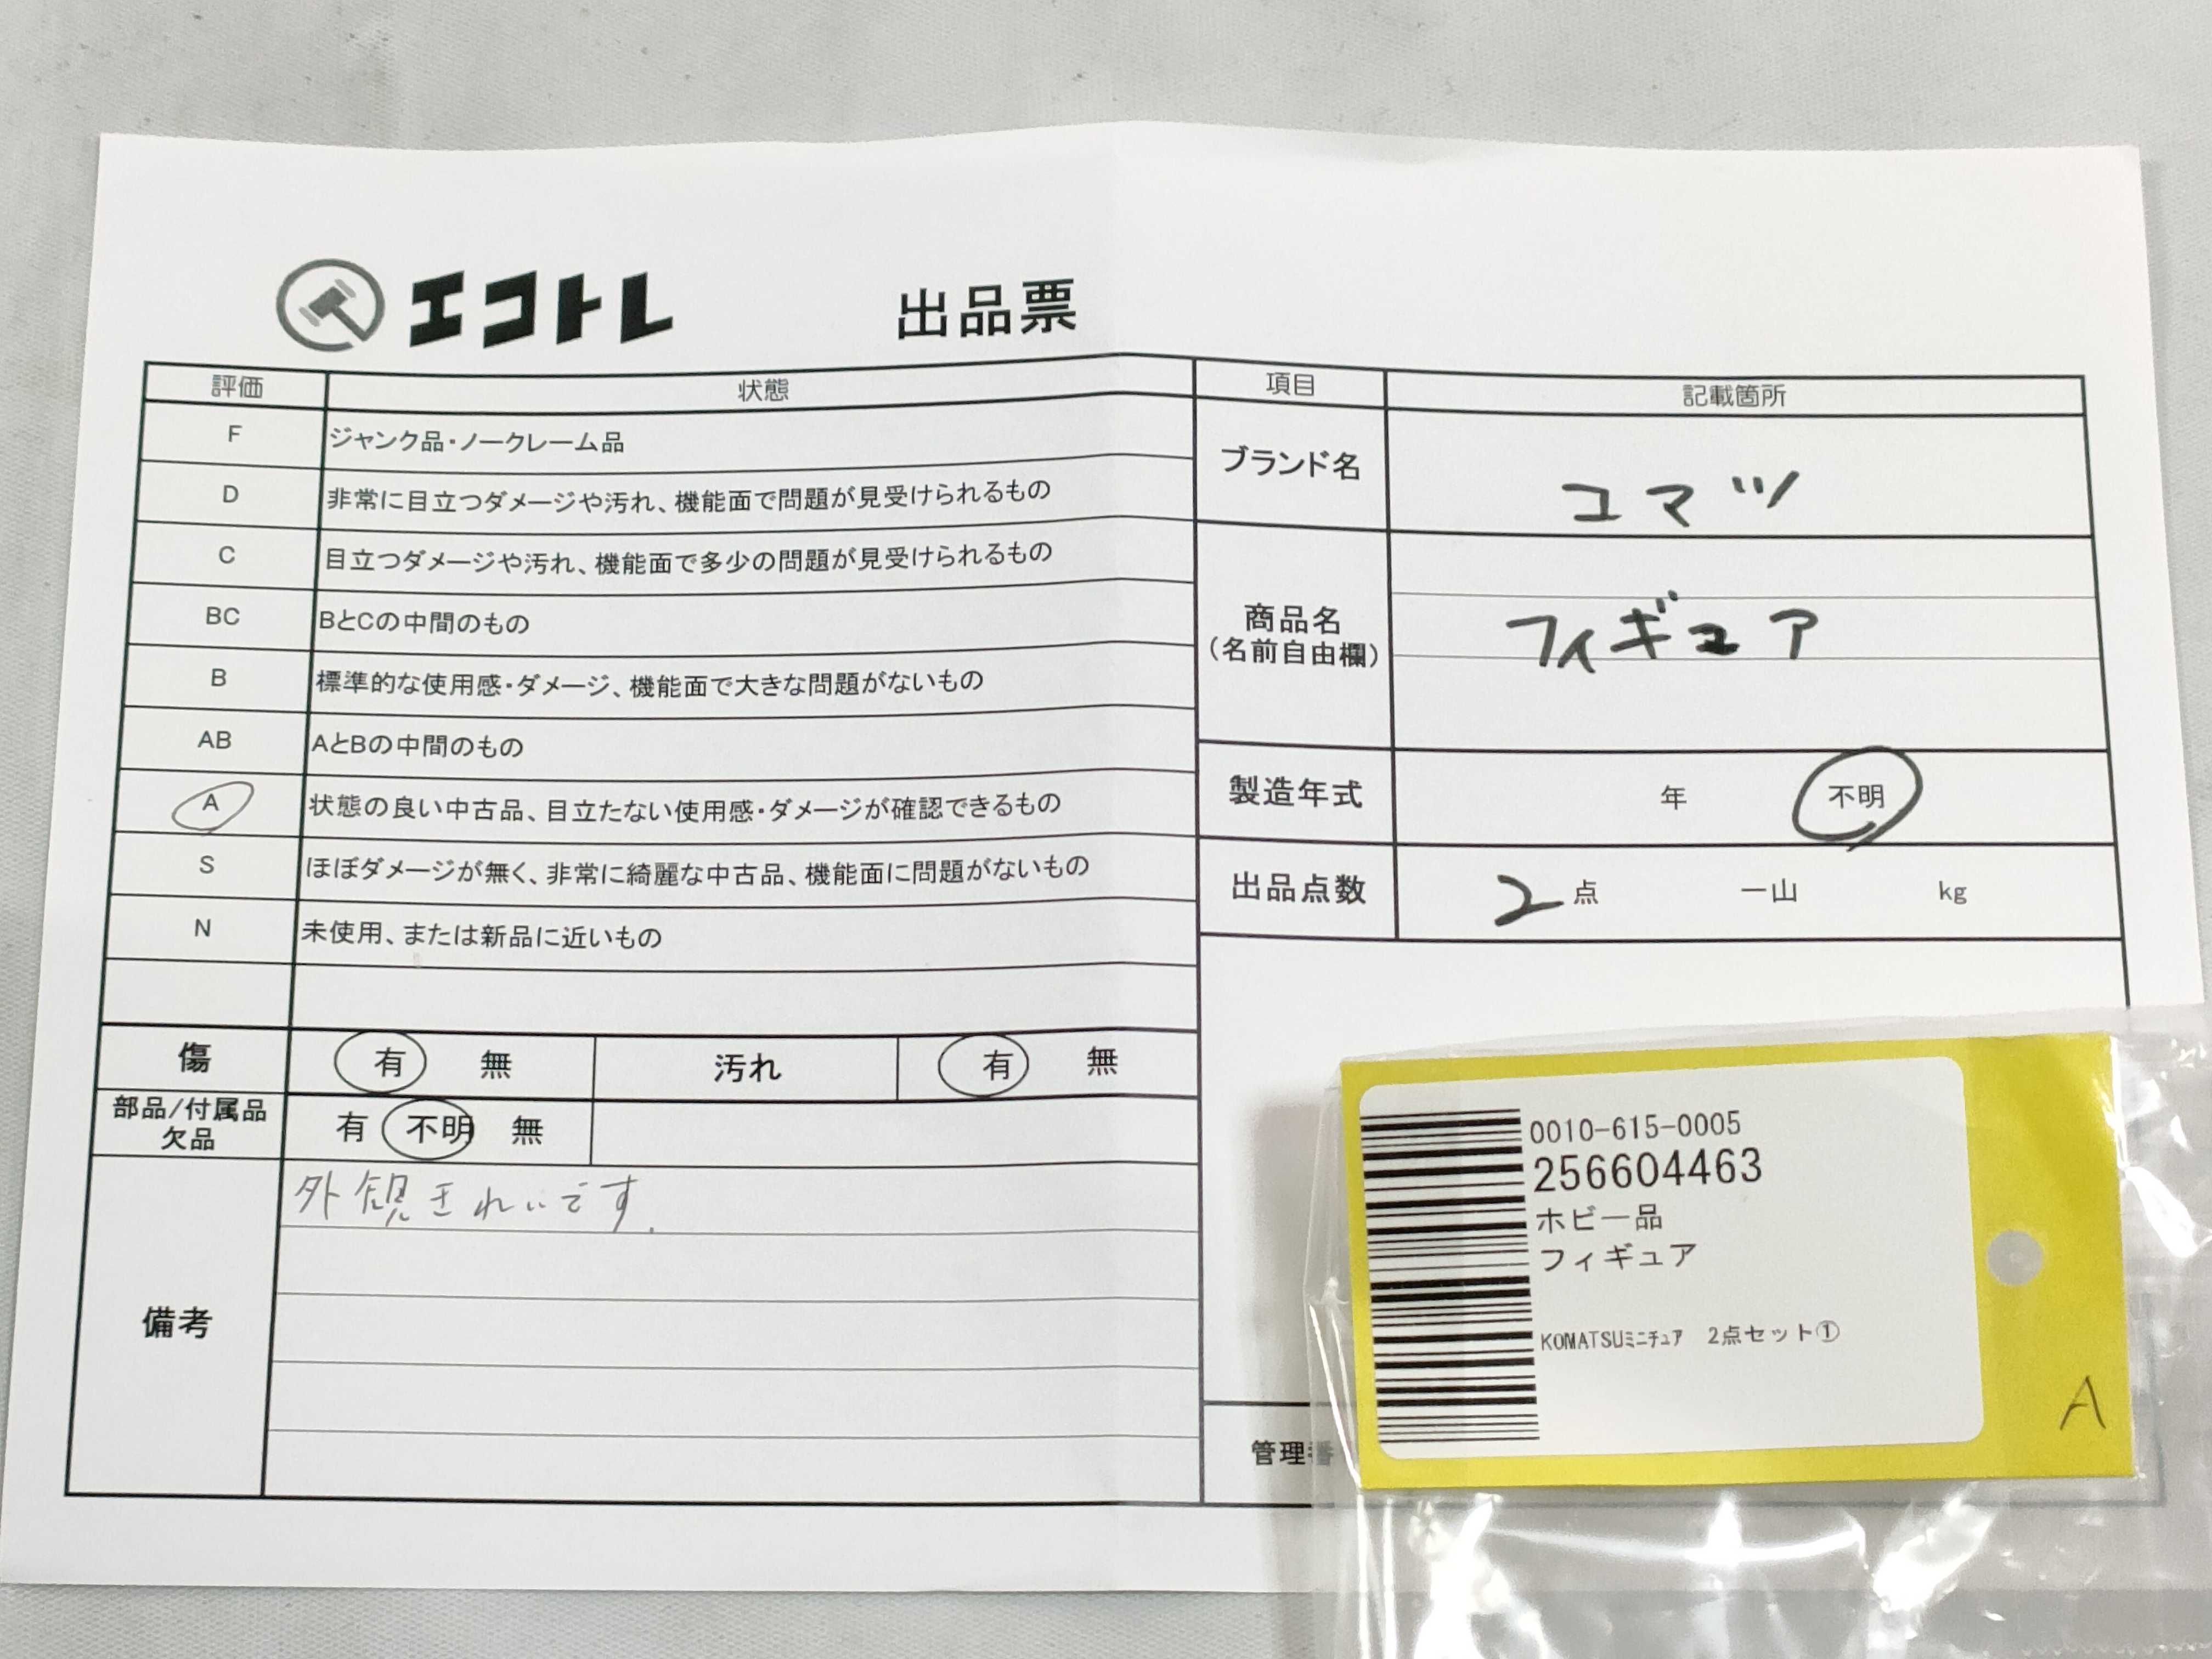 エコトレ 出品票
評価 状態
F ジャンク品・ノークレーム品
D 非常に目立つダメージや汚れ、機能面で問題が見受けられるもの
C 目立つダメージや汚れ、機能面で多少の問題が見受けられるもの
BC BとCの中間のもの
B 標準的な使用感・ダメージ、機能面で大きな問題がないもの
AB AとBの中間のもの
A 状態の良い中古品、目立たない使用感・ダメージが確認できるもの
S ほぼダメージが無く、非常に綺麗な中古品、機能面に問題がないもの
N 未使用、または新品に近いもの
傷 有 無 汚れ 有 無
部品/付属品
欠品 有 不明 無
備考 外観きれいです.
項目 記載箇所
ブランド名 コマツ
商品名
(名前自由欄) フィギュア
製造年式 年 不明
出品点数 2点 一山 kg
管理番
0010-615-0005
256604463
ホビー品
フィギュア
KOMATSUミニチュア 2点セット①
A